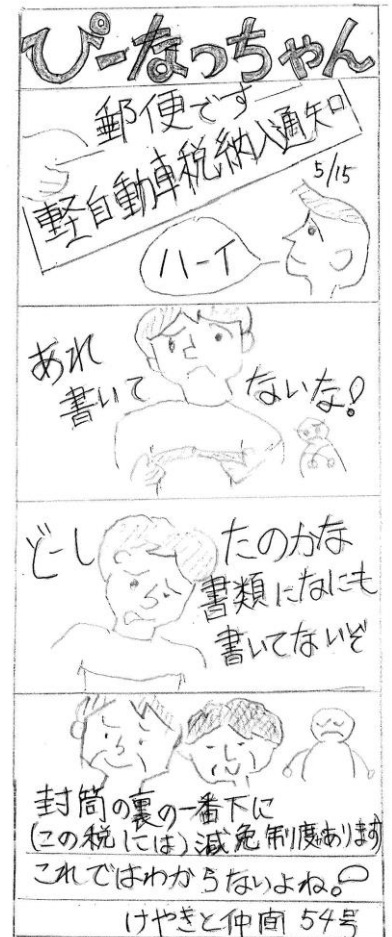 ぴーなっちゃん
郵便です
軽自動車税納入通知
5/15
ハーイ
あれ
書いて
ないな!
どーし
たのかな
書類になにも
書いてないぞ
封筒の裏の一番下に
(この税には)減免制度あります
これではわからないよね。
けやきと仲間 54号